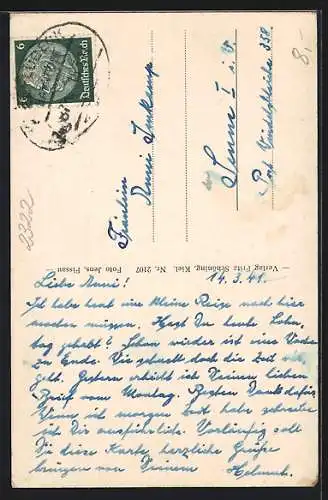 6
Deutsches Reich
8,-
2322
Fräulein
Anni
Senne I i. W.
Post Windelsbleiche 358
— Verlag Fritz Schöning, Kiel. Nr. 2107 Foto Jens, Fissau
14. 3. 41.
Liebe Anni!
Ich habe heut eine kleine Reise nach hier
machen müssen. Hast Du heute Lohn-
tag gehabt? Schon wieder ist eine Woche
zu Ende. Wie schnell doch die Zeit ver-
geht. Gestern erhielt ich Deinen lieben
Brief vom Montag. Besten Dank dafür.
Wenn ich morgen Zeit habe schreibe
ich Dir ausführlich. Vorläufig soll
Dir diese Karte herzliche Grüße
bringen von Deinem Helmut.